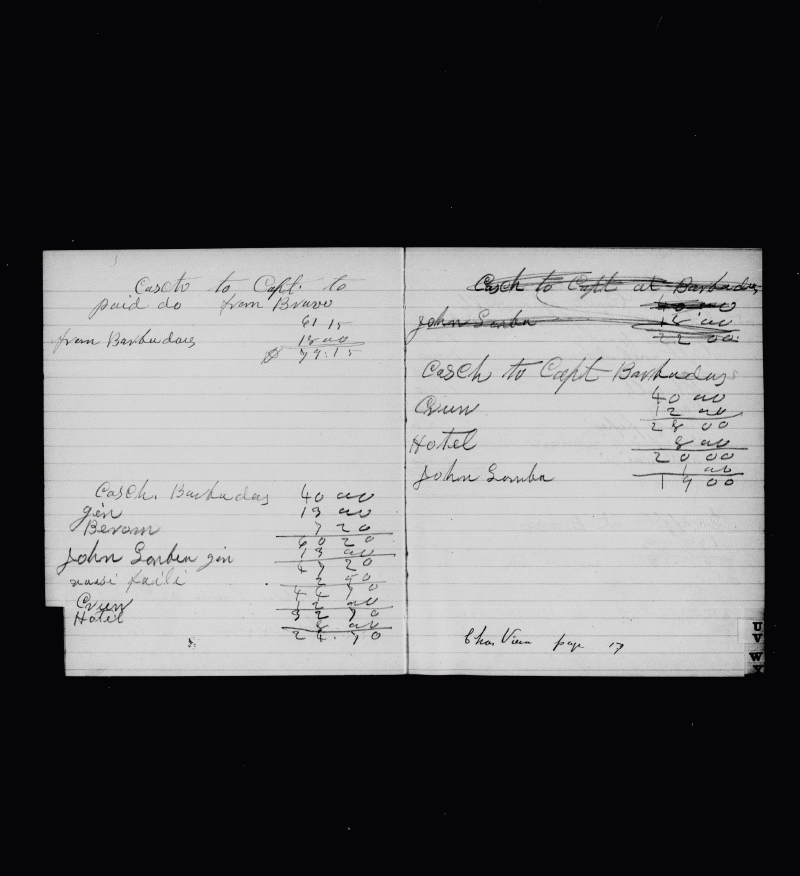 Casch to Capt. to
paid do from Bravo
61 15
from Barbadoes 18 00
$ 79.15
Casch. Barbadas 40 00
gin 13 00
Berom 7 20
60 20
John Lomba gin 13 00
47 20
2 50
44 70
Crun 12 00
32 70
Hotel 8 00
24.70
Casch to Capt at Barbadas
40 00
John Lomba 18 00
22 00
Casch to Capt Barbadas
40 00
Crun 12 00
28 00
Hotel 8 00
20 00
John Lomba 1 00
19 00
Chas Viera page 17
U
V
W